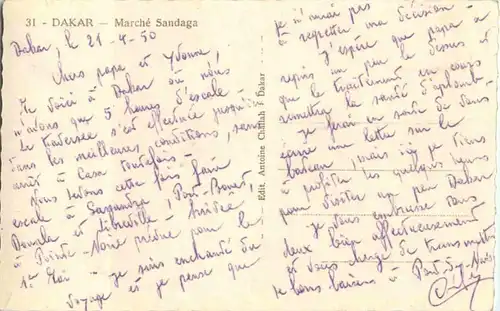 31 - DAKAR — Marché Sandaga
Dakar, le 21-4-50
Chers papa et Yvonne,
Me voici à Dakar où nous
n'avons que 5 heures d'escale.
La traversée s'est effectuée jusqu'ici
dans les meilleures conditions, sans
arrêt à Casa toutefois.
Nous devons cette fois faire
escale à Sassandra, Port-Bouet,
Douala et Libreville, arrivée
à Pointe-Noire prévue pour le
1er Mai. Je suis enchanté du
voyage et je pense que
Edit. Antoine Chittah à Dakar
je n'aurai pas
à regretter ma décision.
J'espère que papa a
repris un peu le dessus et
que le traitement en cours
remettra la santé d'aplomb.
Je ferai en sorte de vous
écrire une lettre sur le
bateau, mais ici je tiens
à profiter des quelques heures
pour visiter un peu Dakar
Je vous embrasse tous
deux bien affectueusement
et vous charge de transmettre
de bons baisers à